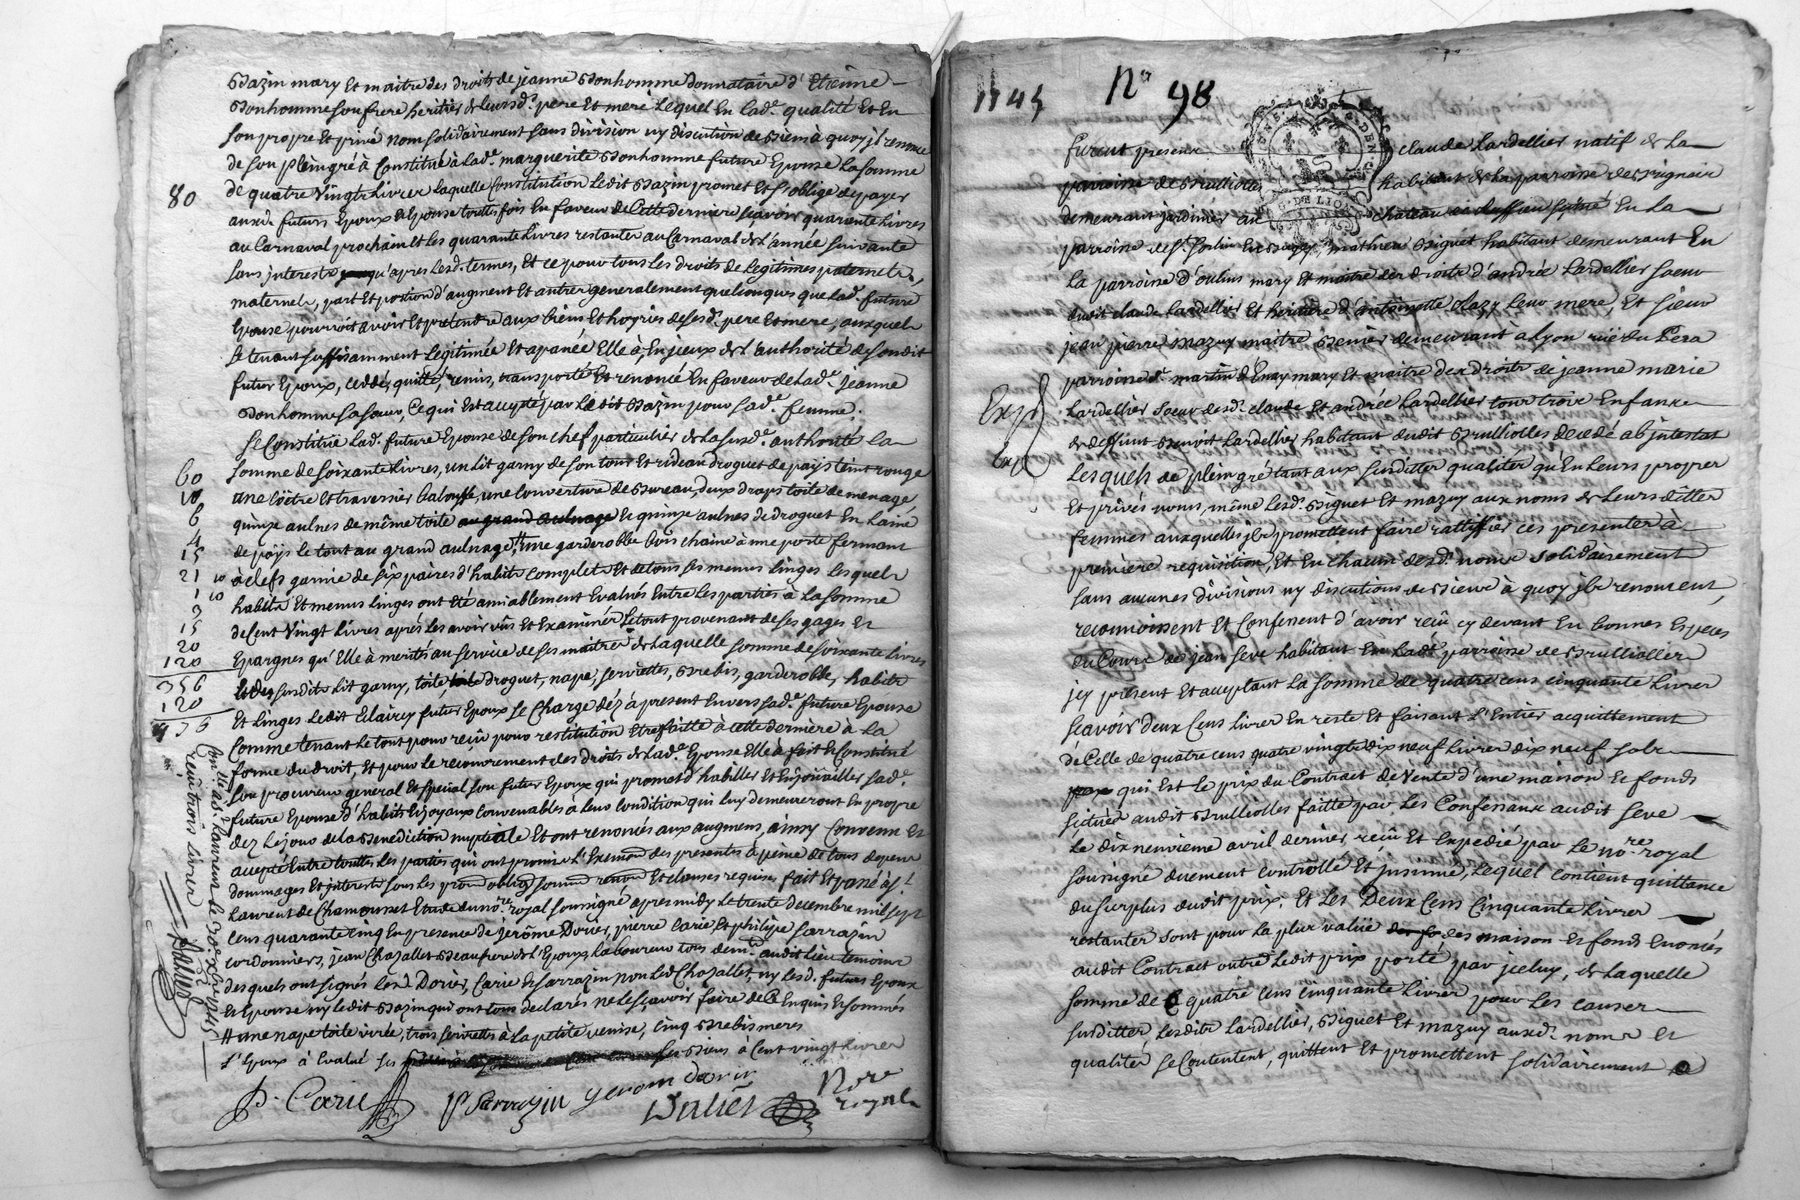 Bazin mary Et maitre des droits de jeanne Bonhomme donnataire d'Etienne
Bonhomme son frere heritier de leursd. pere Et mere Lequel En lad.e qualité Et En
son propre Et privé nom solidairement sans division ny discution de biens à quoy jl renonce
de son plein gré à Constitué à lad.e marguerite Bonhomme future Epouse La somme
80
de quatre Vingt Livres laquelle Constitution Ledit Bazin promet Et s'oblige de payer
auxd. futurs Epoux & Epouse toutte fois En faveur de Cette derniere sçavoir quarante Livres
au Carnaval prochain Et les quarante Livres restantes au Carnaval de L'année suivante
sans jnterests qu'apres lesd. termes, Et ce pour tous les droits de Legitimes paternels,
maternels, part Et portion d'augment Et autres generalement quelconques que lad. future
Epouse pourroit avoir Et pretendre aux biens Et hoyries de sesd. pere Et mere, auxquels
se tenant suffisamment Legitimée Et apanée Elle à En jceux de L'authorité de sondit
futur Epoux, ceddé, quitté, remis, transporté Et renoncé En faveur de lad.e jeanne
Bonhomme sa sœur, Ce qui Est accepté par Ledit Bazin pour sad.e femme.
Se Constitue Lad. future Epouse de son chef particulier de la susd.e authorité la
60
somme de soixante Livres, un Lit garny de son tour Et rideau droguet de pays teint rouge
10
une Coëtre Et traversier balouffe, une couverture de Bureau, deux draps toile de menage
6
quinze aulnes de même toile au grand aulnage Et quinze aulnes de droguet En laine
4
de pays le tout au grand aulnage, # une garderobbe bois chaine à une porte fermant
15
21 10
à clefs garnie de six paires d'habits complets Et de tous ses menus linges Lesquels
1 10
habits Et menus linges ont Eté amiablement Evalués Entre Les parties à La somme
3
15
de Cent Vingt Livres après les avoir vûs Et Examinés Le tout provenant de ses gages Et
20
120
Epargnes qu'Elle à merités au service de ses maitres de Laquelle somme de soixante Livres
356
susdits Lit garny, toile, droguet, nape, serviettes, Brebis, garderobbe, habits
120
Et Linges Ledit Clairey futur Epoux se Charge déz à présent Envers sad.e future Epouse
Comme tenant Le tout pour reçû pour restitution Etre faitte à cette derniere à La
forme du droit, Et pour le recouvrement des droits de Lad.e Epouse Elle à fait Et Constitué
son procureur general Et special son futur Epoux qui promet d'habiller Et Enjoüailler sad.e
future Epouse d'habits Et joyaux Convenables à leur Condition qui luy demeureront En propre
dez Le jour de la Benediction nuptiale Et ont renoncés aux augmens, ainsy Convenu Et
accepté Entre touttes Les parties qui ont promis L'Execution des presentes à peine de tous depens
dommages Et jnterests sous Les Et clauses requises, fait Et passé à S.t
Laurent de Chamousset Etude du no.re royal soussigné apres midy Le trente decembre mil sept
Cens quarante cinq En presence de jerôme Dorier, pierre Carie Et philipe Sarrazin
cordonniers, jean Chazallet Beaufrere de L'Epoux Laboureur tous dem.t audit Lieu temoins
desquels ont signés Lesd. Dorier, Carie Et Sarrazin non Led. Chazallet, ny Lesd. futurs Epoux
Et Epouse ny Ledit Bazin qui ont declarés ne le sçavoir faire de Ce Enquis Et sommés
# une nape toile virée, trois serviettes à La petite venise, Cinq Brebis meres
L'Epoux à Evalué ses siens à Cent vingt Livres
P. Carie P Sarrazin Yerome dorir
Not.re royal
Con.llé à S.t Laurent le
Receu trois Livres
1745 N° 98
furent presens Claude Lardellier natif de La
parroisse de Brulliolles habitant de La parroisse de
demeurant jardinier au Chateau En La
parroisse de S.t Sorlin En Bugey, mathieu Biguet habitant demeurant En
La parroisse d'oulins mary Et maitre des droits d'andrée Lardellier sœur
dudit Claude Lardellier Et heritiere d'antoinette Leur mere, Et sieur
jean pierre Mazuy maitre demeurant à Lyon ruë du Pera
parroisse S.t martin d'Enay mary Et maitre des droits de jeanne marie
Lardellier sœur desd. Claude Et andrée Lardellier tous trois Enfans
de deffunt Benoit Lardellier habitant dudit Brulliolles decedé ab jntestat
Lesquels de plein gré tant aux susdittes qualités qu'En Leurs propres
Et privés noms, même Lesd. Biguet Et mazuy aux noms de Leurs dittes
femmes auxquelles jls promettent faire rattiffier ces presentes à
premiere requisition, Et En chacun desd. noms solidairement
sans aucunes divisions ny discutions de biens à quoy jls renoncent,
reconnoissent Et Confessent d'avoir reçû cy devant En bonnes Especes
du Cours de jean Seve habitant En Lad.e parroisse de Brulliolles
jcy present Et acceptant La somme de quatre Cens Cinquante Livres
sçavoir deux Cens Livres En reste Et faisant L'Entier acquittement
de Celle de quatre Cens quatre vingts dix neuf Livres dix neuf sols
qui Est Le prix du Contract de Vente d'une maison Et fonds
situés audit Brulliolles faitte par Les Confessans audit Seve
Le dix neuvieme avril dernier reçû Et Expedié par Le no.re royal
soussigné duement Controllé Et jnsinué, Lequel Contient quittance
du surplus dudit prix, Et Les Deux Cens Cinquante Livres
restantes sont pour La plus value des maison Et fonds Enoncés
audit Contract outre Ledit prix porté par jceluy, de Laquelle
somme de quatre Cens Cinquante Livres pour Les causes
susdittes, Lesdits Lardellier, Biguet Et Mazuy auxd. noms Et
qualités se Contentent, quittent Et promettent solidairement
Exp.
Exp.